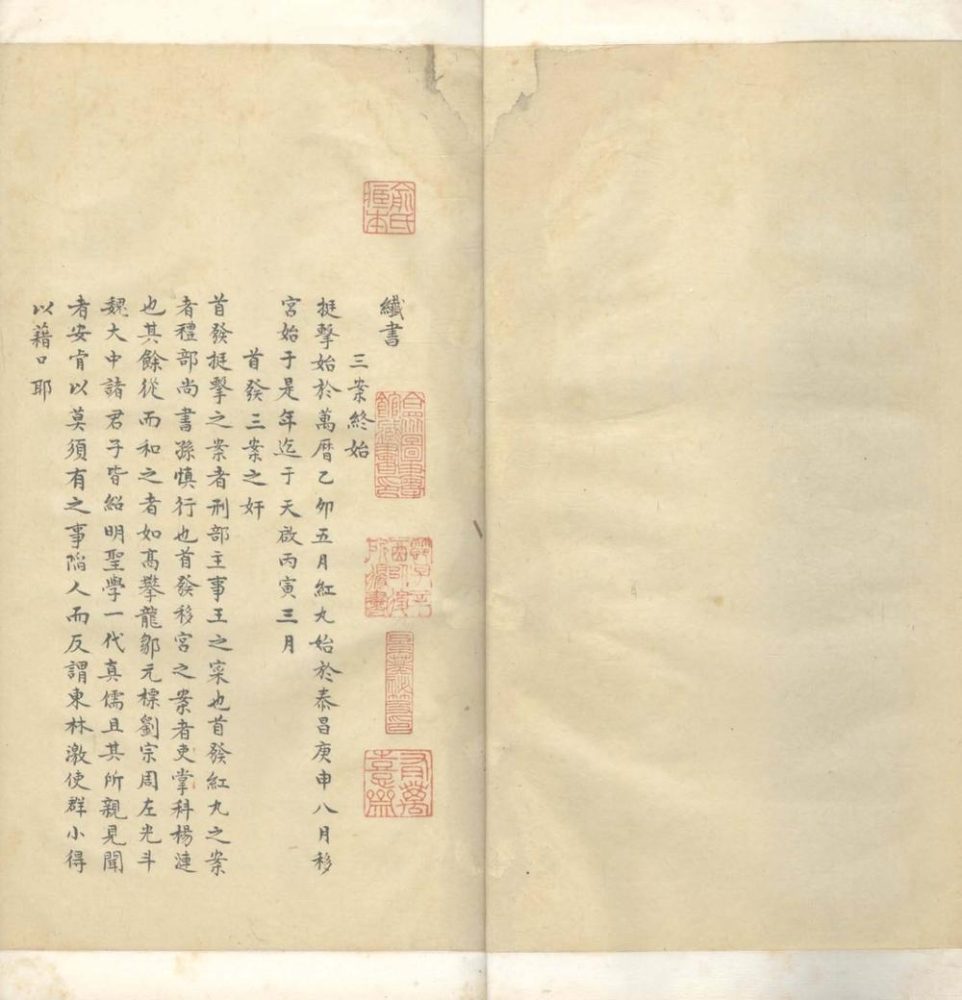 纖書
三案終始
挺擊始於萬曆乙卯五月紅丸始於泰昌庚申八月移
宮始于是年迄于天啟丙寅三月
首發三案之奸
首發挺擊之案者刑部主事王之寀也首發紅丸之案
者禮部尚書孫慎行也首發移宮之案者吏掌科楊漣
也其餘從而和之者如高攀龍鄒元標劉宗周左光斗
魏大中諸君子皆紹明聖學一代真儒且其所親見聞
者安肯以莫須有之事陷人而反謂東林激使群小得
以藉口耶